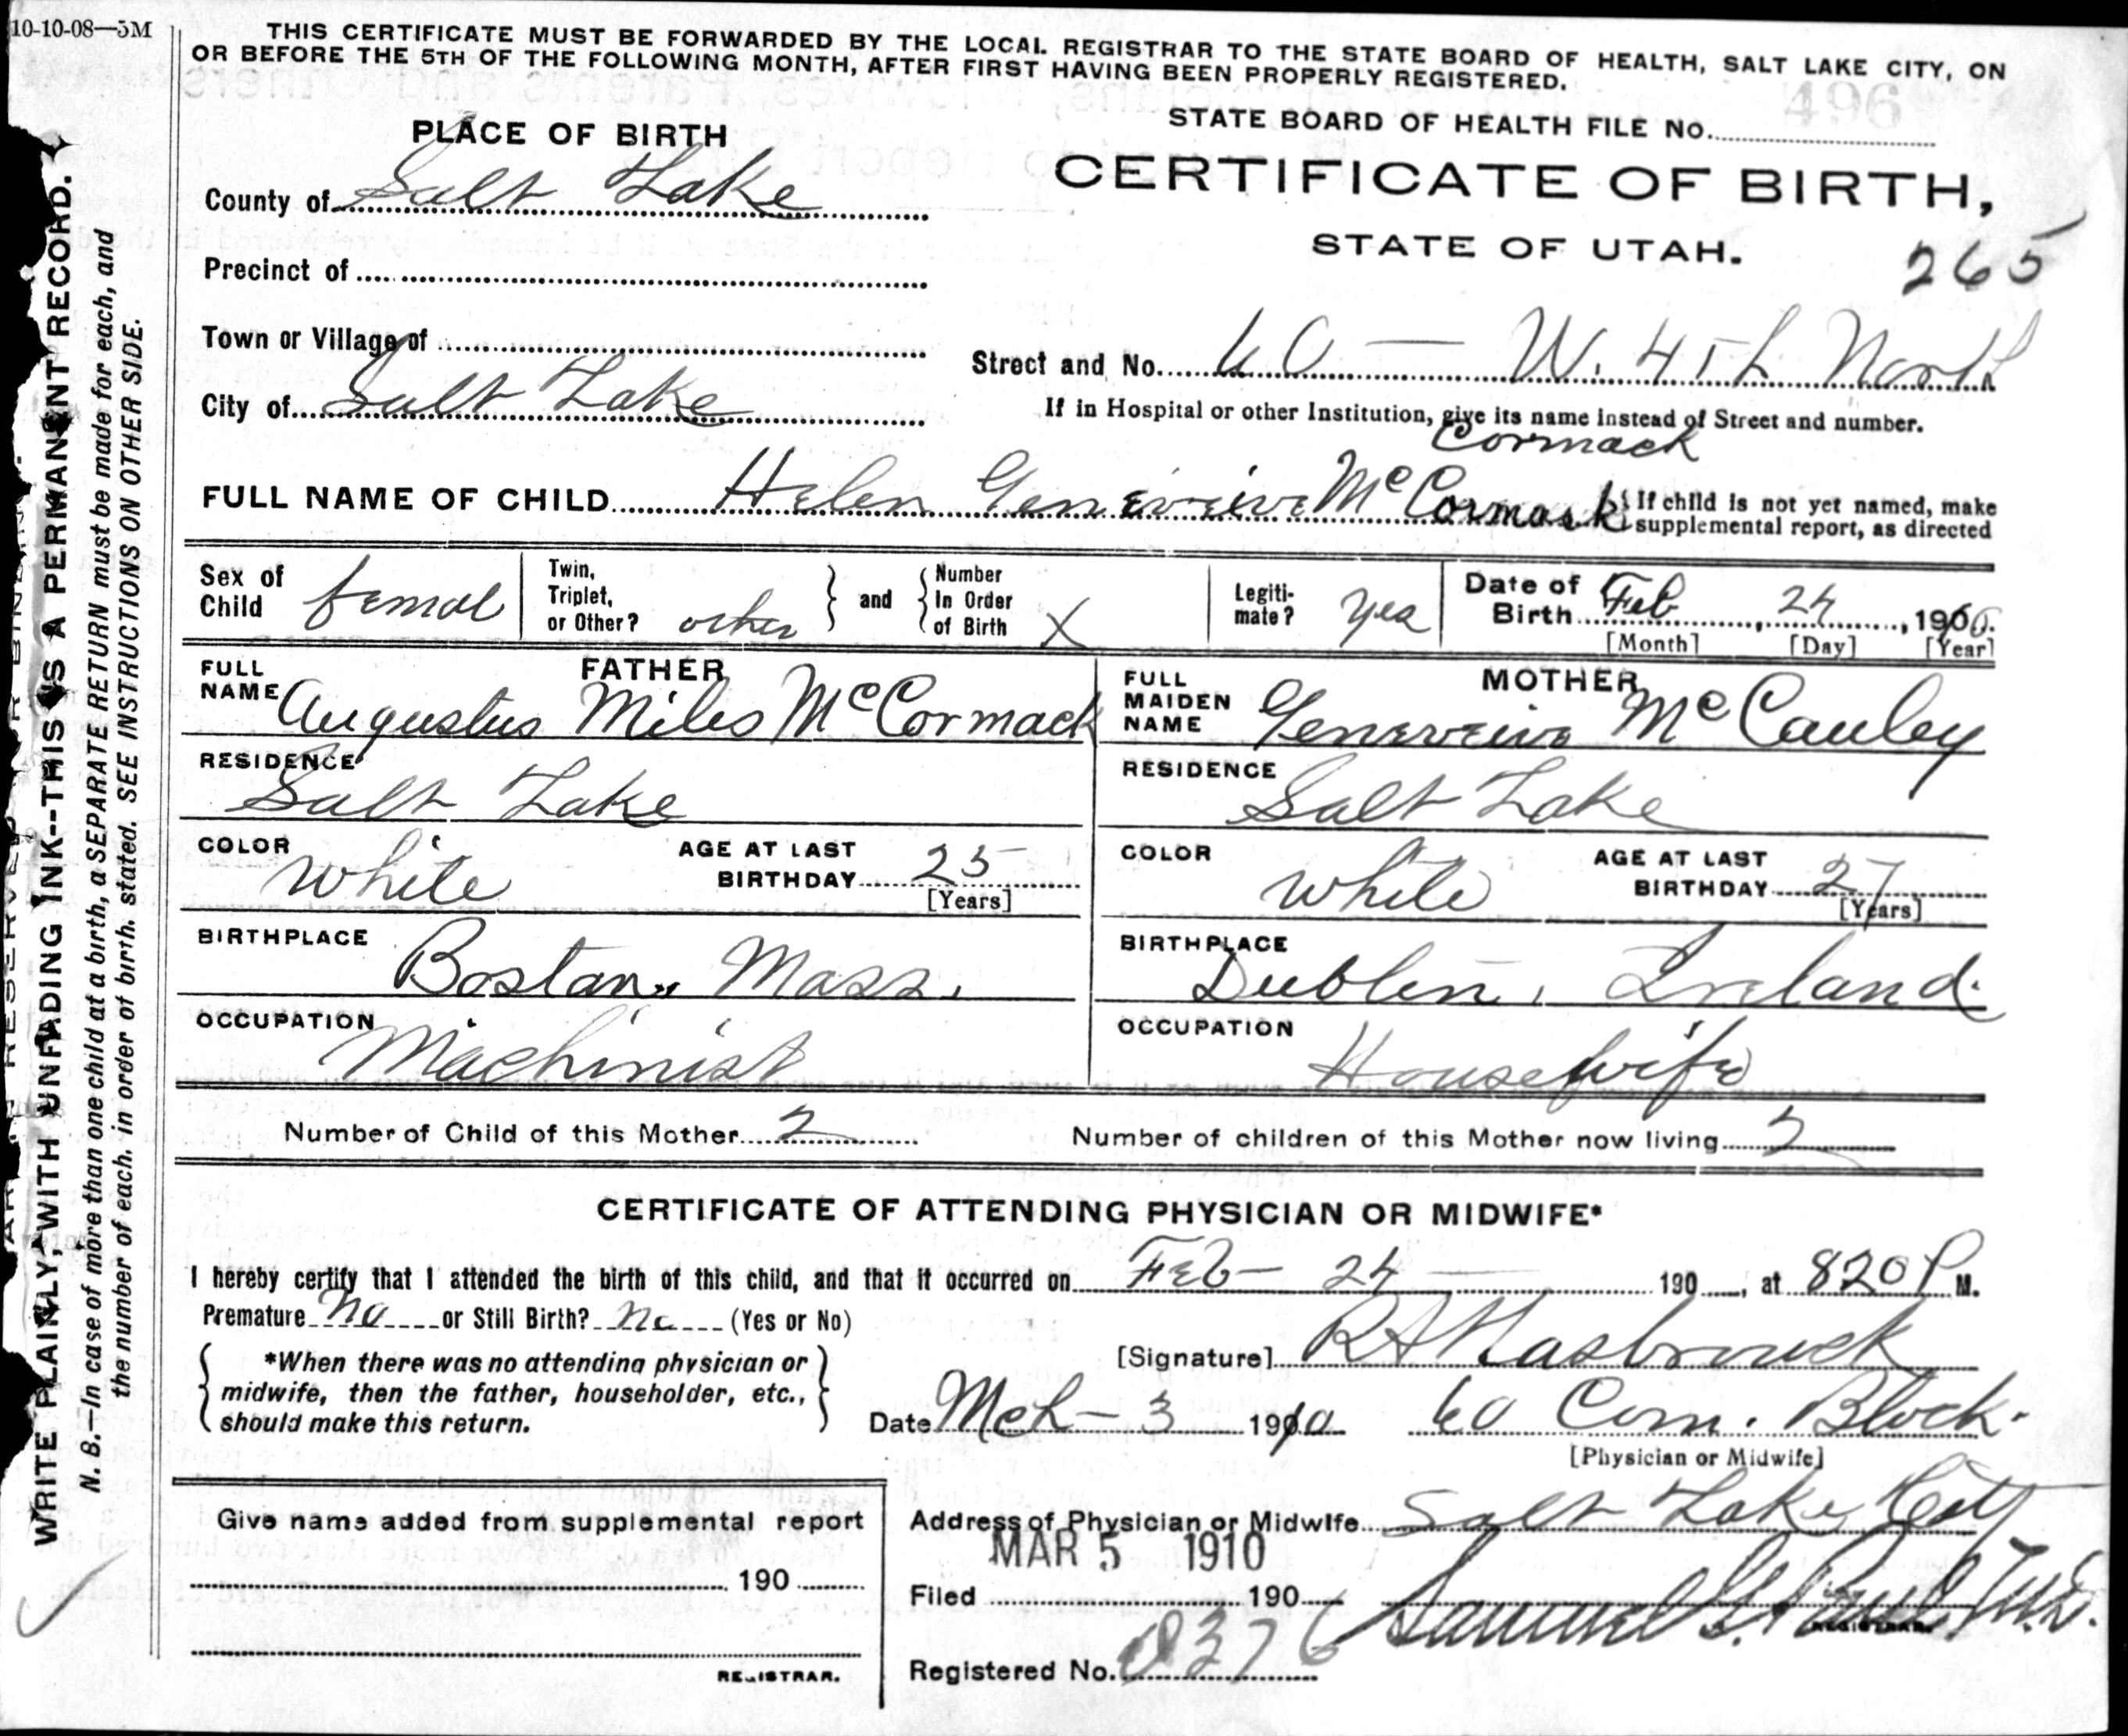 10-10-08—5M
THIS CERTIFICATE MUST BE FORWARDED BY THE LOCAL REGISTRAR TO THE STATE BOARD OF HEALTH, SALT LAKE CITY, ON
OR BEFORE THE 5TH OF THE FOLLOWING MONTH, AFTER FIRST HAVING BEEN PROPERLY REGISTERED.
WRITE PLAINLY, WITH UNFADING INK--THIS IS A PERMANENT RECORD.
N. B.—In case of more than one child at a birth, a SEPARATE RETURN must be made for each, and
the number of each. in order of birth. stated. SEE INSTRUCTIONS ON OTHER SIDE.
STATE BOARD OF HEALTH FILE NO.
PLACE OF BIRTH
CERTIFICATE OF BIRTH,
STATE OF UTAH.
265
County of Salt Lake
Precinct of
Town or Village of
City of Salt Lake
Street and No. 60 — W. 4th North
If in Hospital or other Institution, give its name instead of Street and number.
Cormack
FULL NAME OF CHILD Helen Geneveive McCormack
If child is not yet named, make
supplemental report, as directed
Sex of Child femal
Twin, Triplet, or Other? other
and
Number In Order of Birth X
Legiti-mate? yes
Date of Birth Feb 24, 1910.
[Month] [Day] [Year]
FATHER
FULL NAME Augustus Miles McCormack
RESIDENCE Salt Lake
COLOR White
AGE AT LAST BIRTHDAY 25
[Years]
BIRTHPLACE Boston, Mass.
OCCUPATION Machinist
MOTHER
FULL MAIDEN NAME Geneveive McCauley
RESIDENCE Salt Lake
COLOR White
AGE AT LAST BIRTHDAY 27
[Years]
BIRTHPLACE Dublin, Ireland.
OCCUPATION Housewife
Number of Child of this Mother 2
Number of children of this Mother now living 2
CERTIFICATE OF ATTENDING PHYSICIAN OR MIDWIFE*
I hereby certify that I attended the birth of this child, and that it occurred on Feb - 24 — 190 , at 820 P M.
Premature No or Still Birth? No (Yes or No)
*When there was no attending physician or
midwife, then the father, householder, etc.,
should make this return.
[Signature] R A Hasbrouck
Date Mch - 3 1910
60 Com. Block.
[Physician or Midwife]
Give name added from supplemental report
190
REGISTRAR.
Address of Physician or Midwife Salt Lake City
MAR 5 1910
Filed 190
Samuel G. Paul M.D.
REGISTRAR.
Registered No. 0376